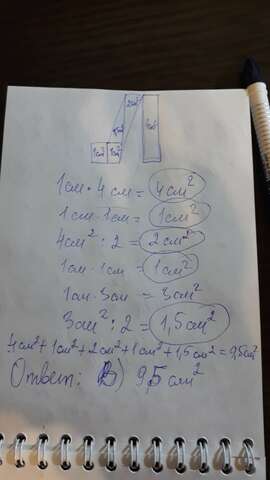 2см²
4см²
1см² 1см²
1см • 4см = 4см²
1см • 1см = 1см²
4см² : 2 = 2см²
1см • 1см = 1см²
1см • 3см = 3см²
3см² : 2 = 1,5см²
4см² + 1см² + 2см² + 1см² + 1,5см² = 9,5см²
Ответ: В) 9,5 см²